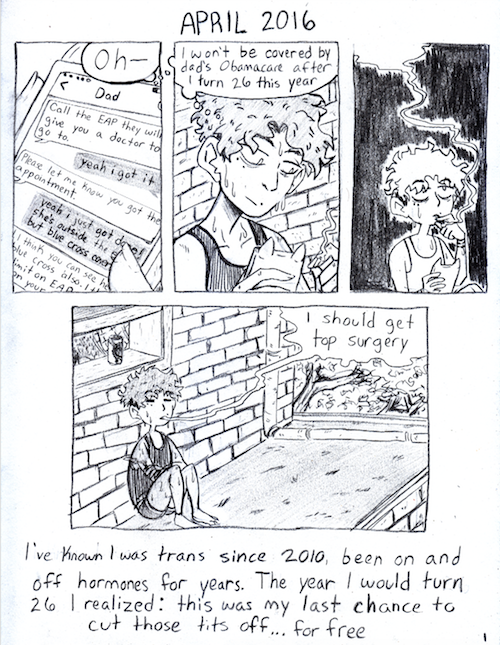 APRIL 2016
Oh—
Dad
Call the EAP they will
give you a doctor to
go to.
yeah i got it
Please let me know you got the
appointment.
yeah i just got done!
she's outside the
but blue cross
I think you can see
blue cross also.
limit on EAP
on your
I won't be covered by
dad's Obamacare after
I turn 26 this year
I should get
top surgery
I've Known I was trans since 2010, been on and
off hormones for years. The year I would turn
26 I realized: this was my last chance to
cut those tits off... for free
1